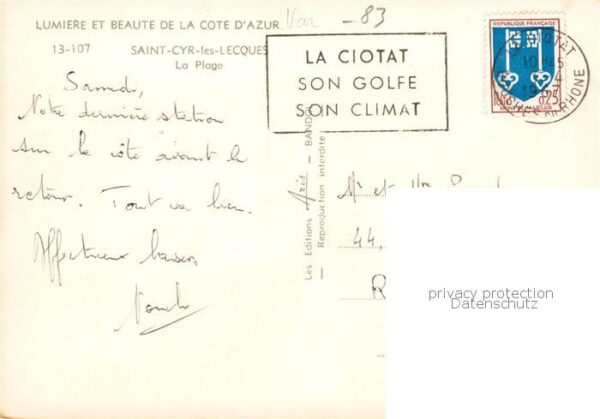 LUMIERE ET BEAUTE DE LA COTE D'AZUR
Var - 83
13-107 SAINT-CYR-les-LECQUES
La Plage
Samedi,
Notre dernière station
sur la côte avant le
retour. Tout va bien.
Affectueux baisers,
Les Editions Aris — BANDOL
— Reproduction interdite —
LA CIOTAT
SON GOLFE
SON CLIMAT
REPUBLIQUE FRANÇAISE
0,25
MONT-DE-MARSAN
LA CIOTAT
10H45
BCHES DU RHONE
Mr et
44,
R
privacy protection
Datenschutz